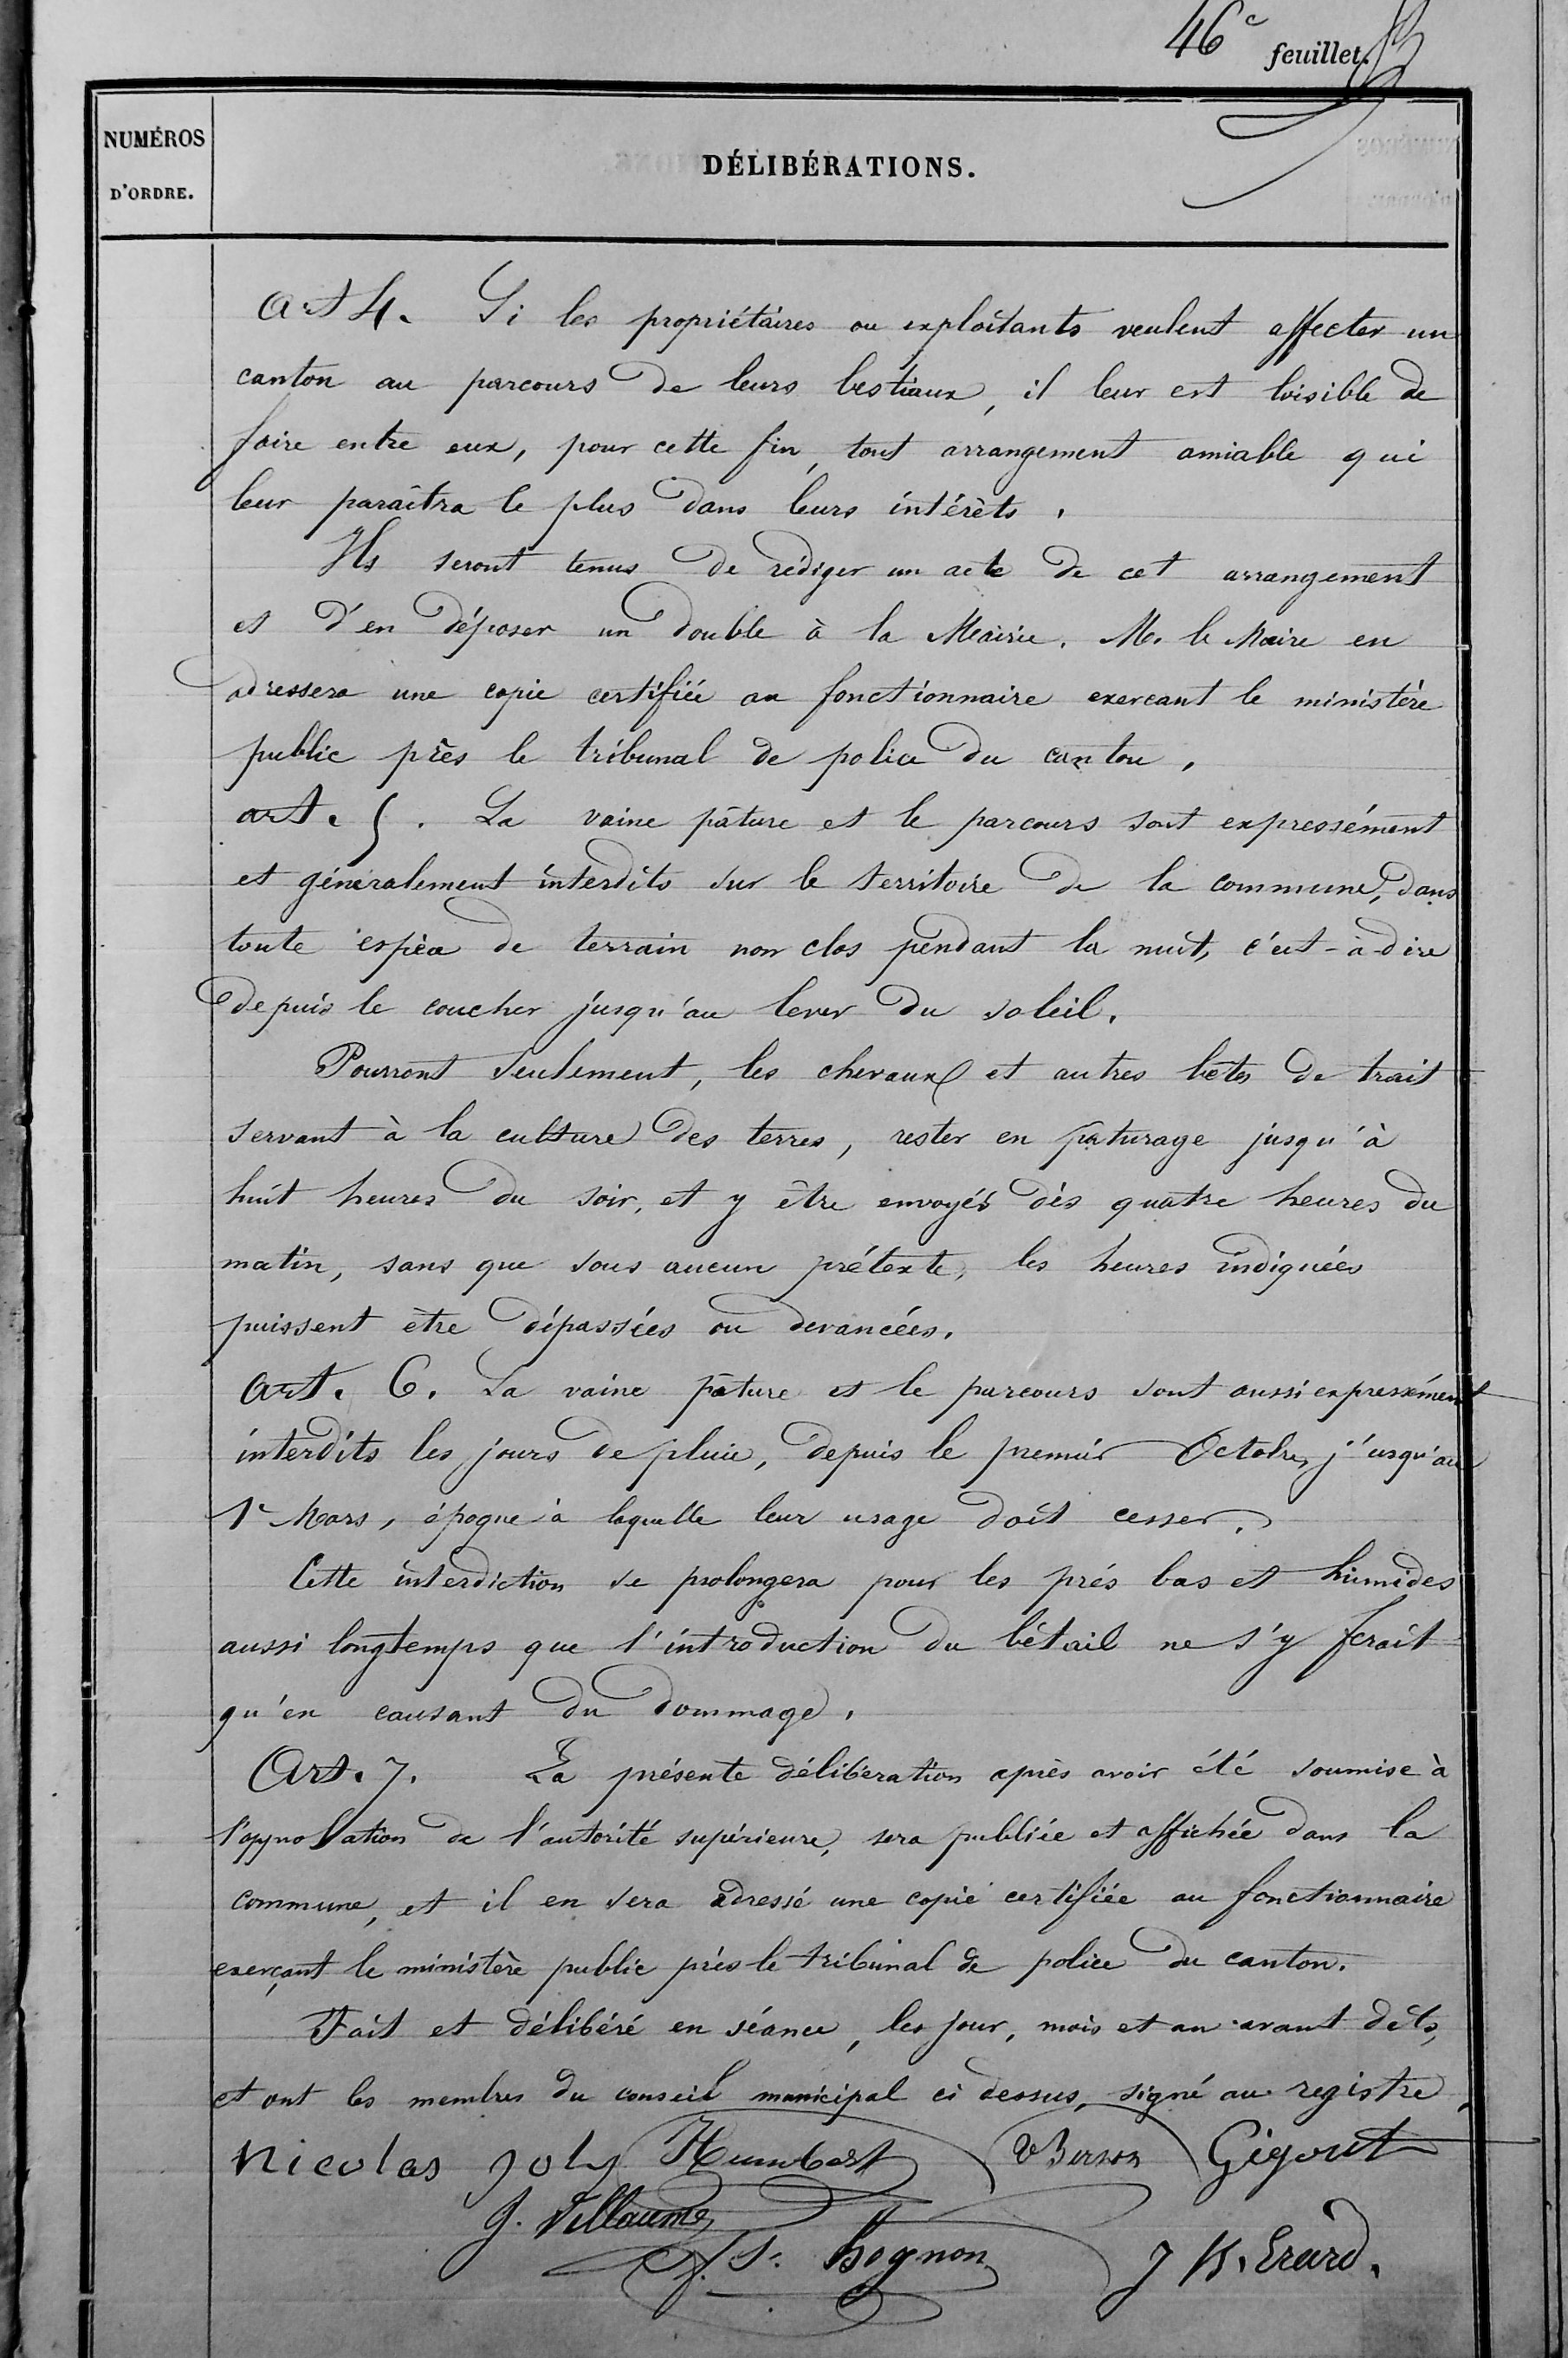 46e feuillet.
NUMÉROS
D'ORDRE.
DÉLIBÉRATIONS.
Art 4. Si les propriétaires ou exploitants veulent affecter un
canton au parcours de leurs bestiaux, il leur est loisible de
faire entre eux, pour cette fin, tout arrangement amiable qui
leur paraîtra le plus dans leurs intérêts.
Ils seront tenus de rédiger un acte de cet arrangement
et d'en déposer un double à la Mairie. M. le Maire en
adressera une copie certifiée au fonctionnaire exercant le ministère
public près le tribunal de police du canton.
art. 5. La vaine pâture et le parcours sont expressément
et généralement interdits sur le territoire de la commune, dans
toute espèce de terrain non clos pendant la nuit, c'est-à-dire
depuis le coucher jusqu'au lever du soleil.
Pourront seulement, les chevaux et autres bêtes de trait
servant à la culture des terres, rester en pâturage jusqu'à
huit heures du soir, et y être envoyés dès quatre heures du
matin, sans que sous aucun prétexte, les heures indiquées
puissent être dépassées ou devancées.
Art. 6. La vaine pâture et le parcours sont aussi expressément
interdits les jours de pluie, depuis le premier Octobre, j'usqu'au
1r Mars, époque à laquelle leur usage doit cesser.
Cette interdiction se prolongera pour les prés bas et humides
aussi longtemps que l'introduction du bétail ne s'y ferait
qu'en causant du dommage.
Art. 7. La présente délibération après avoir été soumise à
l'approbation de l'autorité supérieure, sera publiée et affichée dans la
commune, et il en sera adressé une copie certifiée au fonctionnaire
exerçant le ministère public près le tribunal de police du canton.
Fait et délibéré en séance, les jour, mois et an avant dits,
et ont les membres du conseil municipal ci dessus, signé au registre,
Nicolas Joly Humbert Gigout
J. Villaume
hognon J B. Erard.